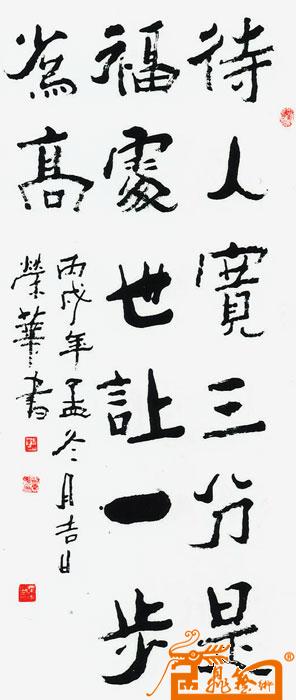 待人寬三分是
福處世讓一步
為高
丙戌年孟冬月吉日
榮華書